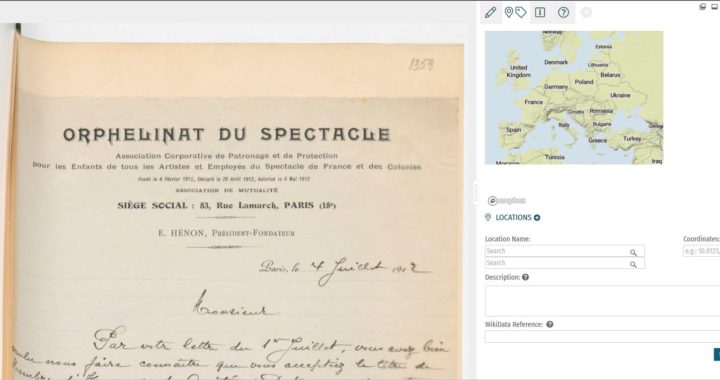 1359
ORPHELINAT DU SPECTACLE
Association Corporative de Patronage et de Protection
Pour les Enfants de tous les Artistes et Employés du Spectacle de France et des Colonies
Fondé le 4 Février 1912, Déclaré le 29 Avril 1912, Autorisé le 6 Mai 1912
ASSOCIATION DE MUTUALITÉ
SIÈGE SOCIAL : 83, Rue Lamarck, PARIS (18e)
E. HÉNON, PRÉSIDENT-FONDATEUR
Paris, le 4 Juillet 1912
Monsieur.
Par votre lettre du 1er Juillet, vous avez bien
nous faire connaître que vous acceptiez le titre de
Norway
Estonia
United Kingdom
Denmark
Lithuania
Belarus
Poland
Germany
Ukraine
France
Croatia
Romania
Bulgaria
Spain
Italy
Greece
Turkey
Morocco
Tunisia
Iraq
mapbox
LOCATIONS
Location Name:
Coordinates:
Search
e.g.: 10.0123,
Search
Description:
WikiData Reference: